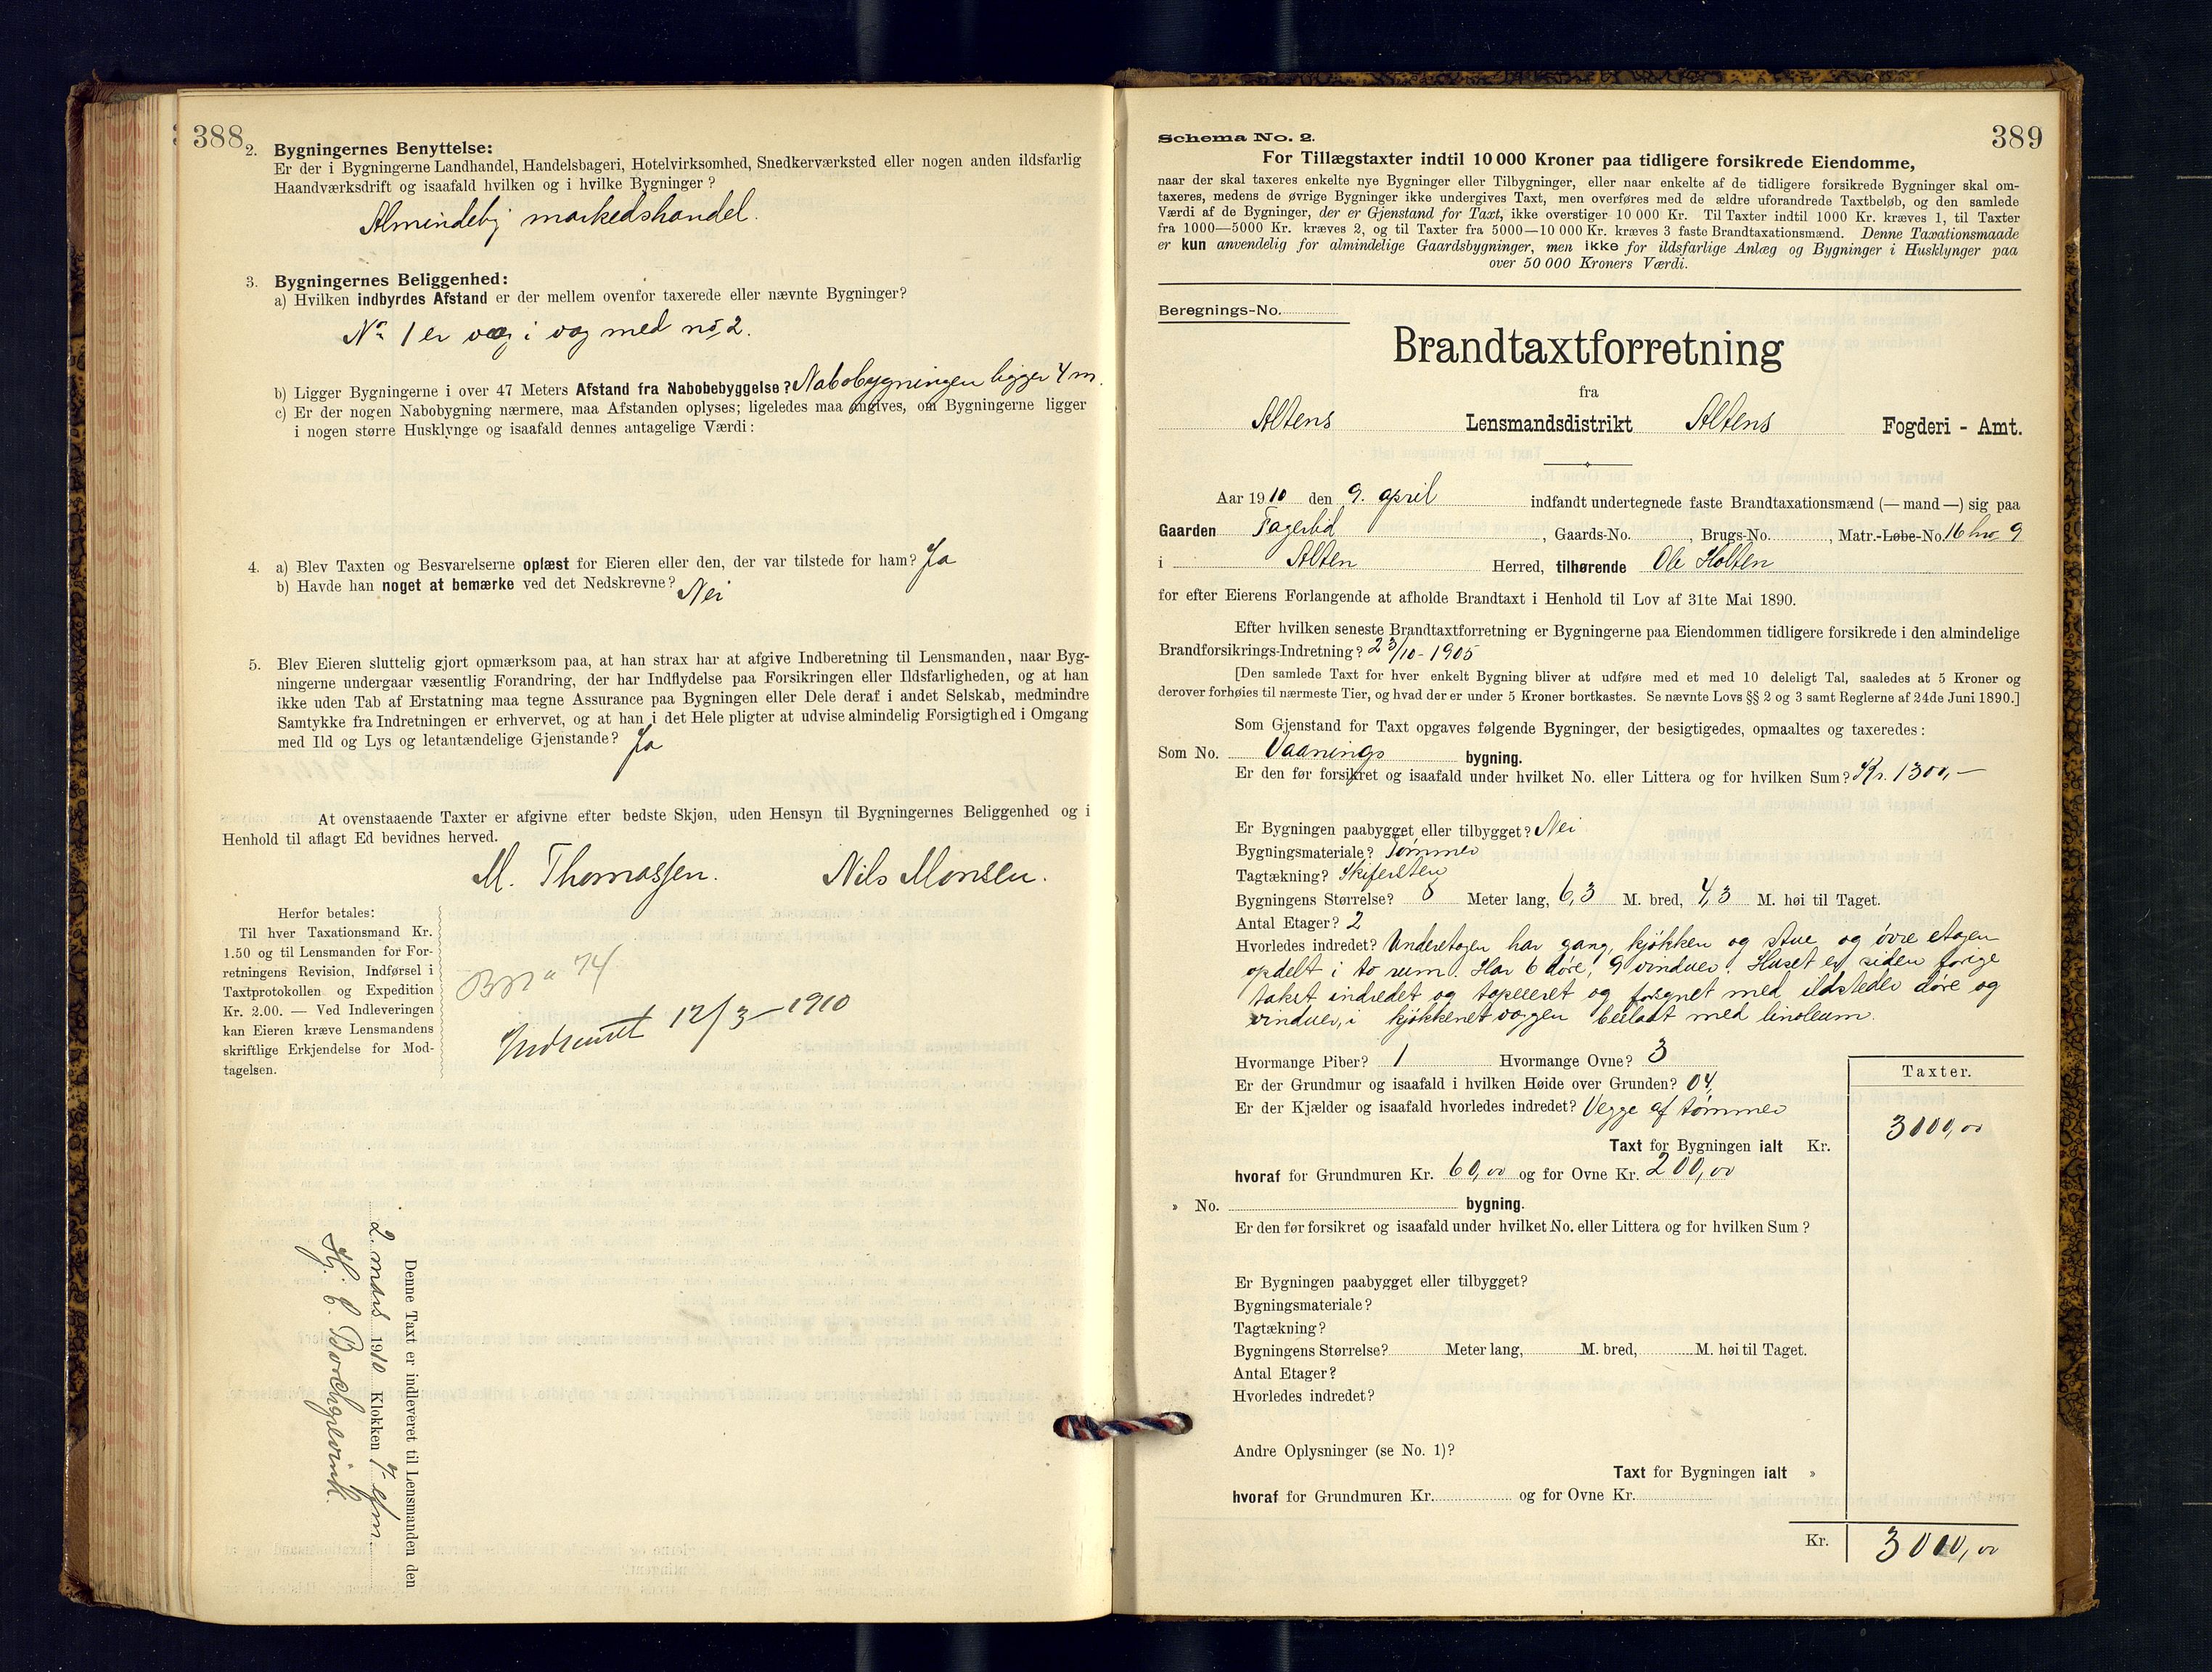 388
2. Bygningernes Benyttelse:
Er der i Bygningerne Landhandel, Handelsbageri, Hotelvirksomhed, Snedkerværksted eller nogen anden ildsfarlig
Haandværksdrift og isaafald hvilken og i hvilke Bygninger?
Almindelig markedshandel.
3. Bygningernes Beliggenhed:
a) Hvilken indbyrdes Afstand er der mellem ovenfor taxerede eller nævnte Bygninger?
No 1 er væg i væg med no 2.
b) Ligger Bygningerne i over 47 Meters Afstand fra Nabobebyggelse? Nabobygningen ligger 4 m.
c) Er der nogen Nabobygning nærmere, maa Afstanden oplyses; ligeledes maa angives, om Bygningerne ligger
i nogen større Husklynge og isaafald dennes antagelige Værdi:
4. a) Blev Taxten og Besvarelserne oplæst for Eieren eller den, der var tilstede for ham? Ja
b) Havde han noget at bemærke ved det Nedskrevne? Nei
5. Blev Eieren sluttelig gjort opmærksom paa, at han strax har at afgive Indberetning til Lensmanden, naar Byg-
ningerne undergaar væsentlig Forandring, der har Indflydelse paa Forsikringen eller Ildsfarligheden, og at han
ikke uden Tab af Erstatning maa tegne Assurance paa Bygningen eller Dele deraf i andet Selskab, medmindre
Samtykke fra Indretningen er erhvervet, og at han i det Hele pligter at udvise almindelig Forsigtighed i Omgang
med Ild og Lys og letantændelige Gjenstande? Ja
At ovenstaaende Taxter er afgivne efter bedste Skjøn, uden Hensyn til Bygningernes Beliggenhed og i
Henhold til aflagt Ed bevidnes herved.
M. Thomassen. Nils Monsen.
Herfor betales:
Til hver Taxationsmand Kr.
1.50 og til Lensmanden for For-
retningens Revision, Indførsel i
Taxtprotokollen og Expedition
Kr. 2.00. — Ved Indleveringen
kan Eieren kræve Lensmandens
skriftlige Erkjendelse for Mod-
tagelsen.
74
Indsendt 12/3 - 1910
Denne Taxt er indleveret til Lensmanden den
2. mars 1910 Klokken 7 efm.
389
Schema No. 2.
For Tillægstaxter indtil 10 000 Kroner paa tidligere forsikrede Eiendomme,
naar der skal taxeres enkelte nye Bygninger eller Tilbygninger, eller naar enkelte af de tidligere forsikrede Bygninger skal om-
taxeres, medens de øvrige Bygninger ikke undergives Taxt, men overføres med de ældre uforandrede Taxtbeløb, og den samlede
Værdi af de Bygninger, der er Gjenstand for Taxt, ikke overstiger 10 000 Kr. Til Taxter indtil 1000 Kr. kræves 1, til Taxter
fra 1000—5000 Kr. kræves 2, og til Taxter fra 5000—10 000 Kr. kræves 3 faste Brandtaxationsmænd. Denne Taxationsmaade
er kun anvendelig for almindelige Gaardsbygninger, men ikke for ildsfarlige Anlæg og Bygninger i Husklynger paa
over 50 000 Kroners Værdi.
Beregnings-No.
Brandtaxtforretning
fra
Altens Lensmandsdistrikt Altens Fogderi - Amt.
Aar 1910 den 9. april indfandt undertegnede faste Brandtaxationsmænd (— mand —) sig paa
Gaarden Fagerlid, Gaards-No. , Brugs-No. , Matr.-Løbe-No. 16 bno 9
i Alten Herred, tilhørende Ole Holten
for efter Eierens Forlangende at afholde Brandtaxt i Henhold til Lov af 31te Mai 1890.
Efter hvilken seneste Brandtaxtforretning er Bygningerne paa Eiendommen tidligere forsikrede i den almindelige
Brandforsikrings-Indretning? 23/10 - 1905
[Den samlede Taxt for hver enkelt Bygning bliver at udføre med et med 10 deleligt Tal, saaledes at 5 Kroner og
derover forhøies til nærmeste Tier, og hvad der er under 5 Kroner bortkastes. Se nævnte Lovs §§ 2 og 3 samt Reglerne af 24de Juni 1890.]
Som Gjenstand for Taxt opgaves følgende Bygninger, der besigtigedes, opmaaltes og taxeredes:
Som No. Vaanings bygning.
Er den før forsikret og isaafald under hvilket No. eller Littera og for hvilken Sum? Kr. 1300,-
Er Bygningen paabygget eller tilbygget? Nei
Bygningsmateriale? Tømmer
Tagtækning? Skifersten
Bygningens Størrelse? 8 Meter lang, 6,3 M. bred, 4,3 M. høi til Taget.
Antal Etager? 2
Hvorledes indredet? Underetagen har gang, kjøkken og stue og øvre etagen
opdelt i to rum. Har 6 døre, 9 vinduer. Huset er siden forige
takst indredet og tapseret og forsynet med ildsteder døre og
vinduer, i kjøkkenet væggen beklædt med linoleum.
Hvormange Piber? 1 Hvormange Ovne? 3
Er der Grundmur og isaafald i hvilken Høide over Grunden? 04,
Er der Kjælder og isaafald hvorledes indredet? Vegge af tømmer
Taxter.
Taxt for Bygningen ialt Kr. 3000,00
hvoraf for Grundmuren Kr. 60,00 og for Ovne Kr. 200,00
» No. bygning.
Er den før forsikret og isaafald under hvilket No. eller Littera og for hvilken Sum?
Er Bygningen paabygget eller tilbygget?
Bygningsmateriale?
Tagtækning?
Bygningens Størrelse? Meter lang, M. bred, M. høi til Taget.
Antal Etager?
Hvorledes indredet?
Andre Oplysninger (se No. 1)?
Taxt for Bygningen ialt »
hvoraf for Grundmuren Kr. og for Ovne Kr.
Kr. 3000,00